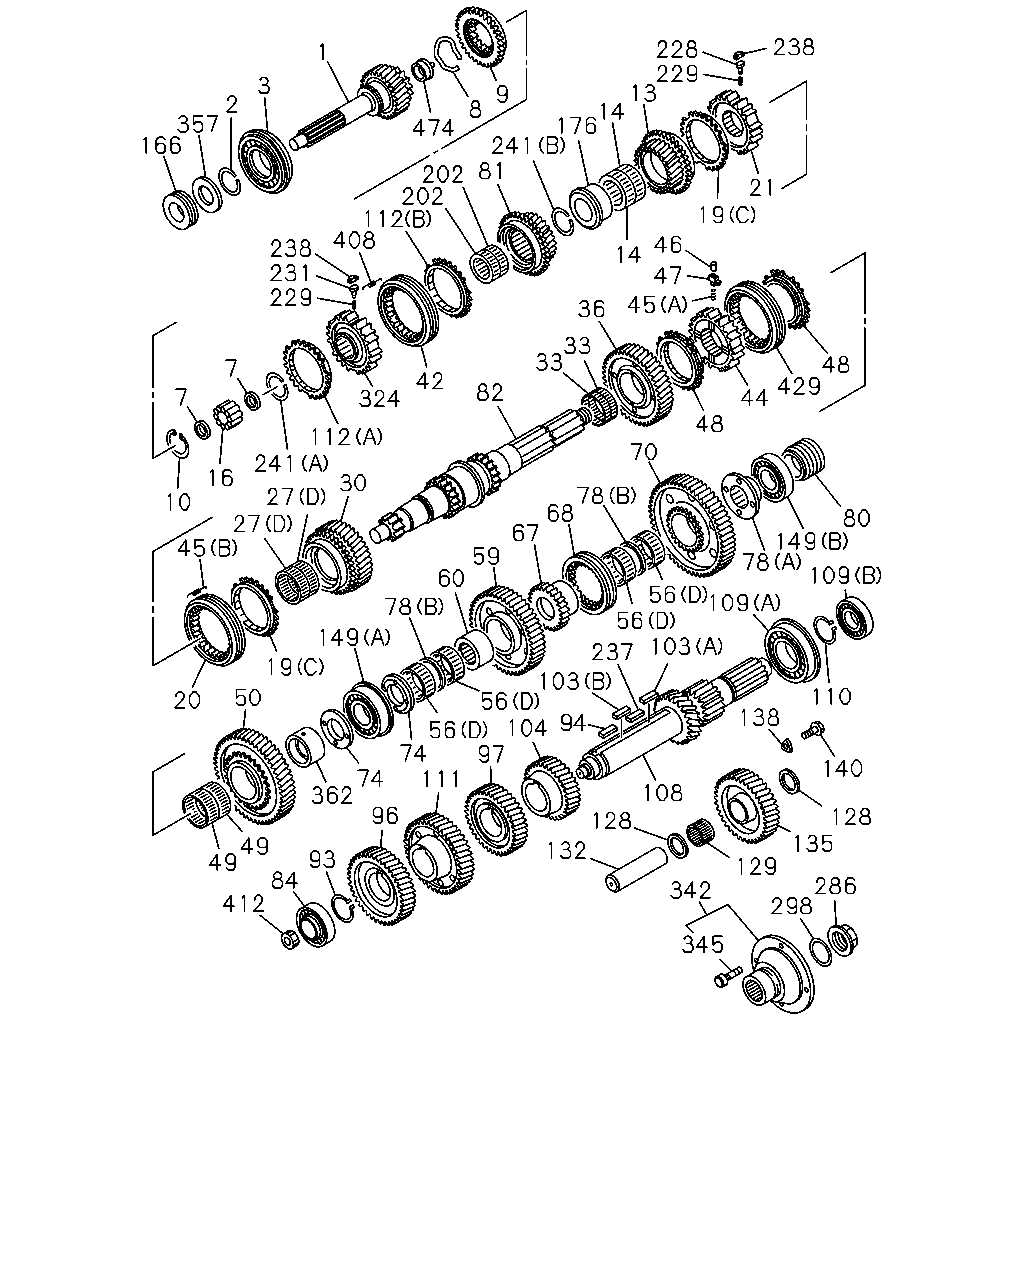 1
3
2
357
166
474
8
9
228
238
229
13
14
176
241(B)
81
202
202
112(B)
408
238
231
229
21
19(C)
14
46
47
45(A)
36
33
33
48
429
44
48
42
324
7
7
112(A)
241(A)
16
10
82
30
27(D)
27(D)
45(B)
20
19(C)
70
78(B)
68
67
59
60
78(B)
149(A)
80
149(B)
78(A)
109(B)
109(A)
56(D)
56(D)
103(A)
237
103(B)
94
110
56(D)
56(D)
74
74
362
50
49
49
104
97
111
96
93
84
412
108
138
140
128
135
128
129
132
342
345
298
286